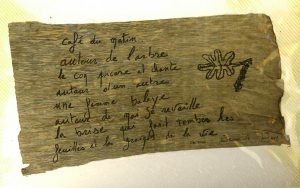 Café du matin
autour de l'arbre
le coq picore et chante
autour d'un arbre
une femme balaye
autour de qui se réveille
la brise qui fait tomber les
feuilles et la de la vie